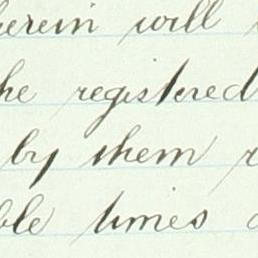 herein will
he registered
by them
ble times